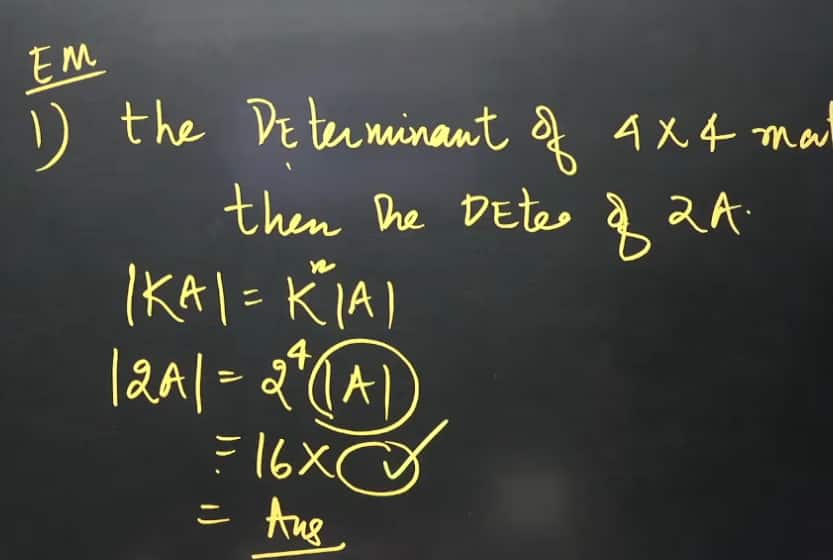 EM
1) the DEterminant of 4 x 4 mat
then the DEter of 2A.
|KA| = Kⁿ|A|
|2A| = 2⁴|A|
= 16 x ✓
= Ans